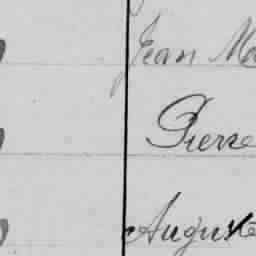 Jean Ma
Pierre
Auguste